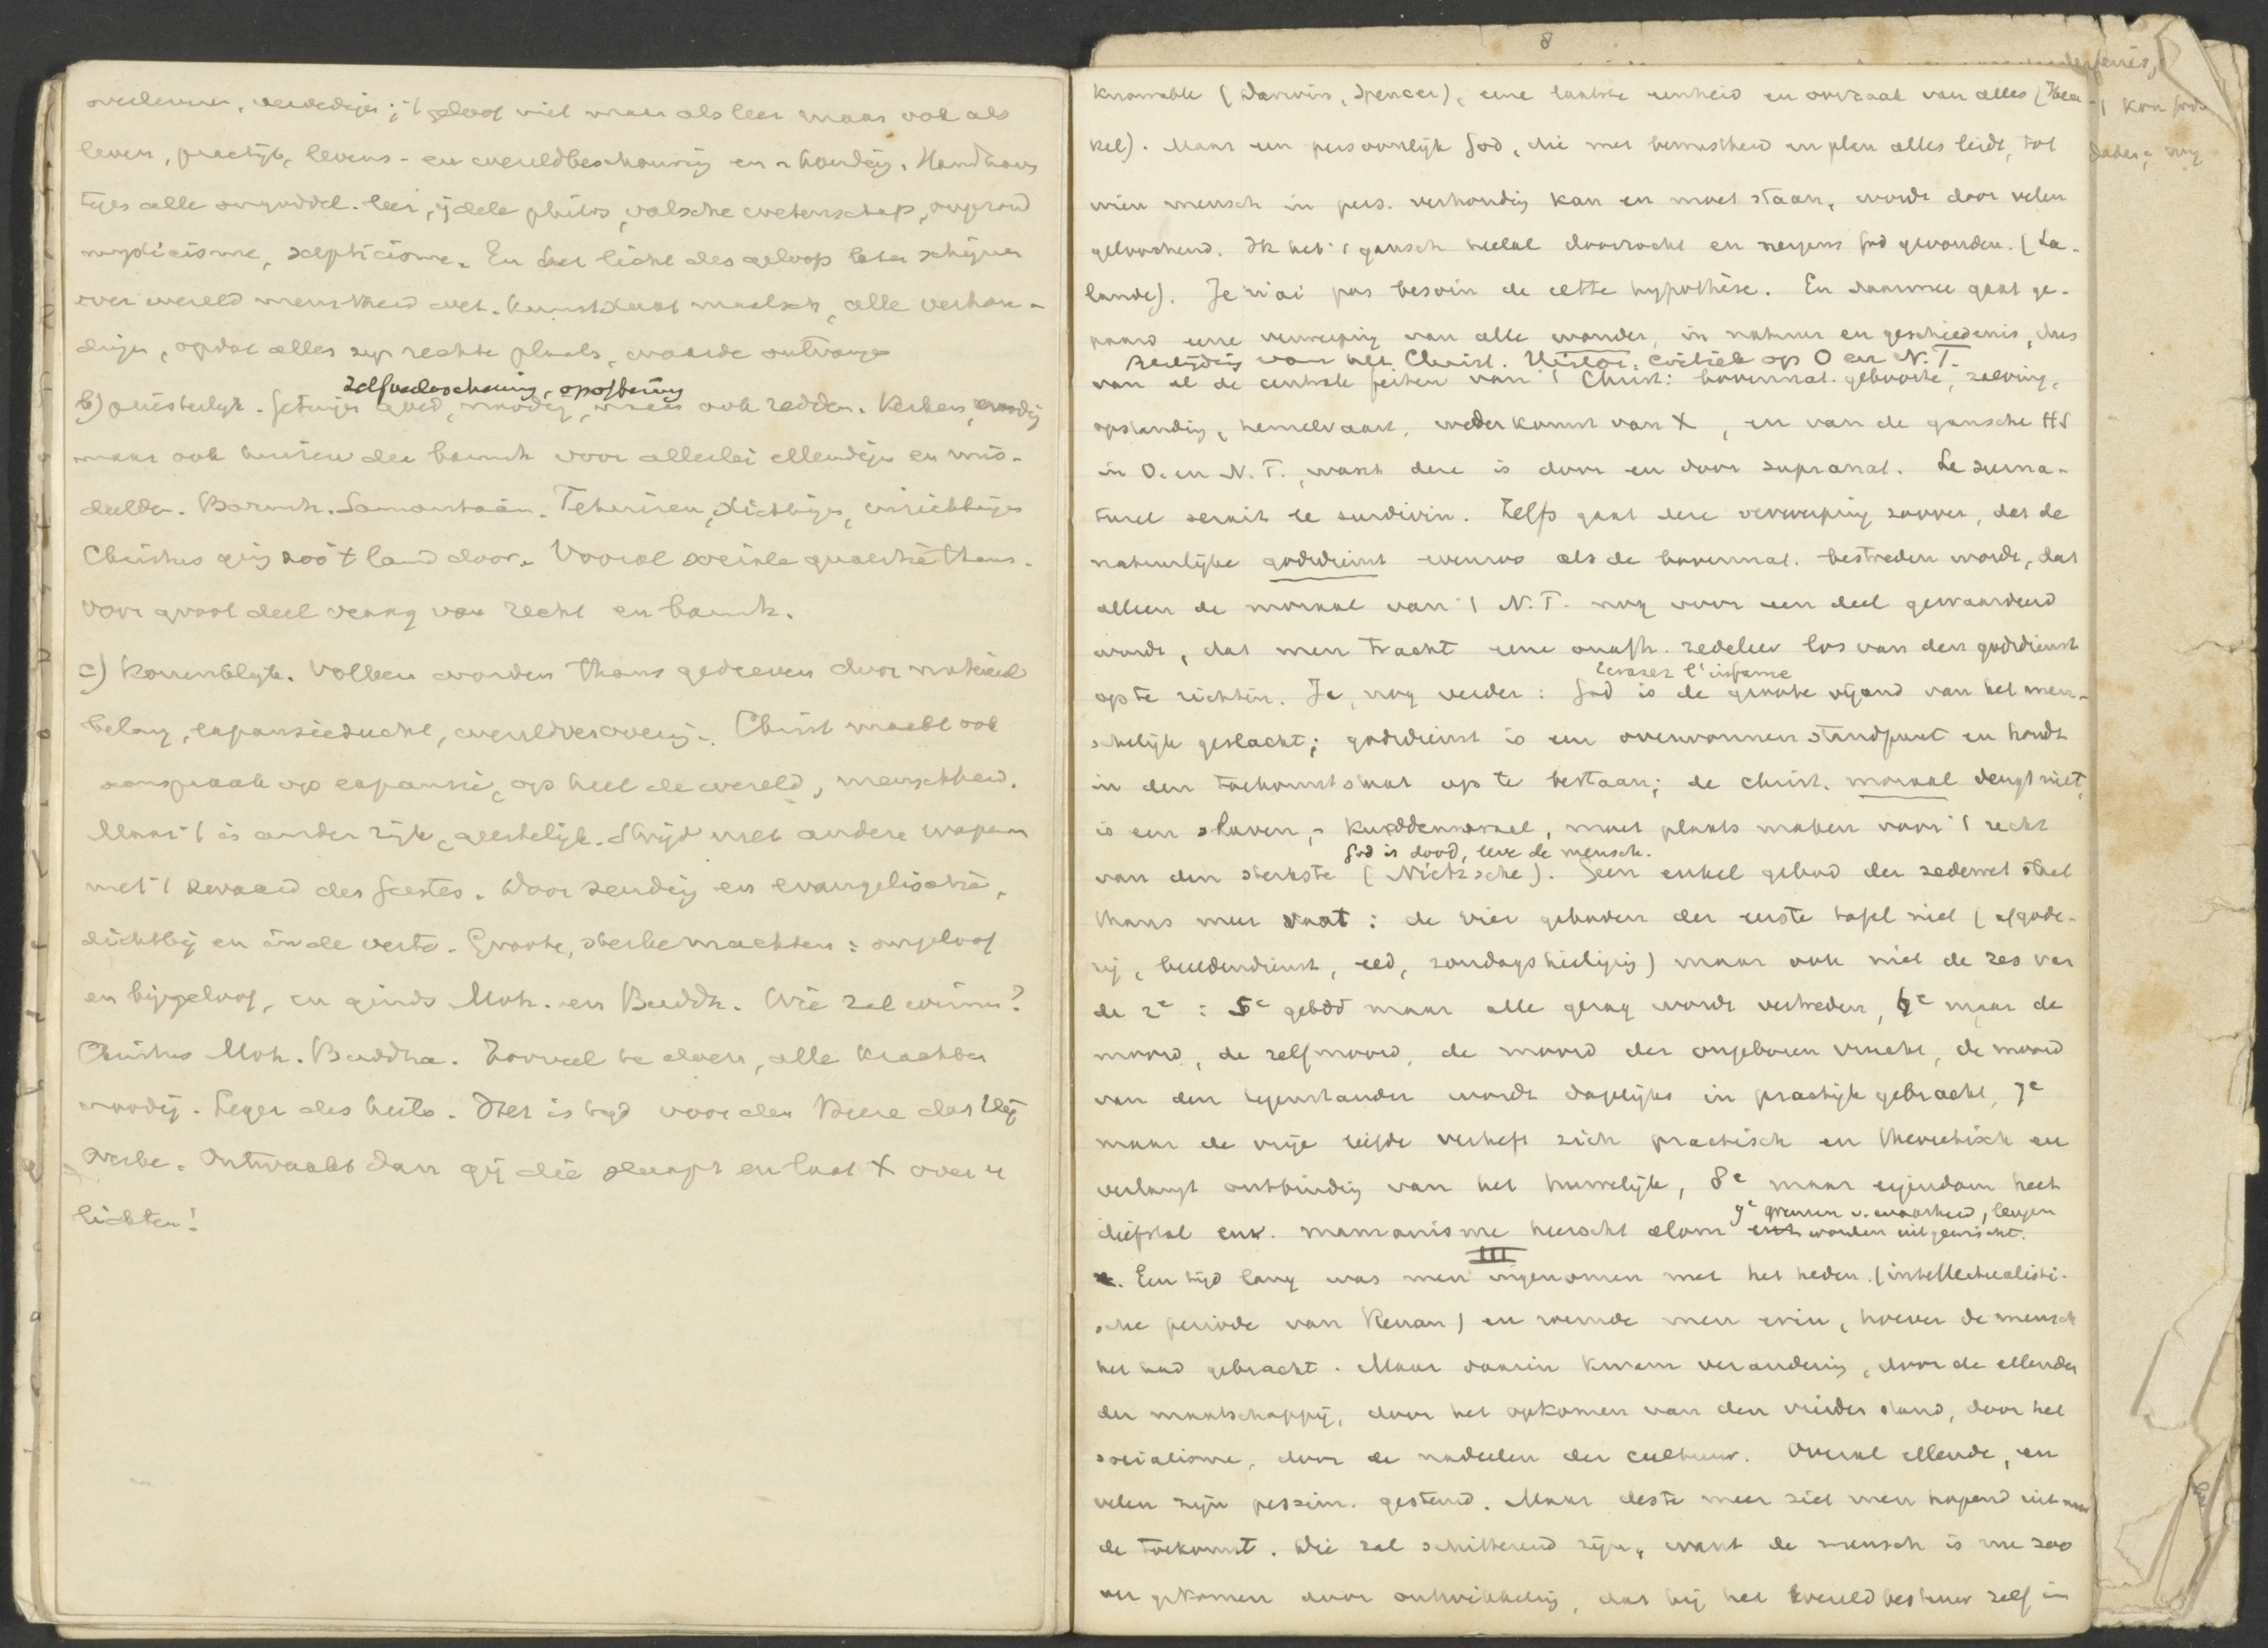 overleveren, verdedigen; 't geloof niet maar als leer maar ook als
leven, practijk, levens- en wereldbeschouwing en -houding. Handhaven
tegen alle ongoddel. leer, ijdele philos, valsche wetenschap, ongezond
mysticisme, scepticisme. En het licht des geloofs laten schijnen
over wereld menschheid wet. kunst staat maatsch, alle verhou-
dingen, opdat alles zijn rechte plaats, waarde ontvange
zelfverloochening, opoffering
b) priesterlijk. Getuigen goed, noodig, maar ook redden. Kerken, noodig
maar ook buiten der barmh voor allerlei ellendigen en mis-
deelden. Barmh. Samaritaan. Tehuizen, stichtingen, inrichtingen
Christus ging zoo 't land door. Vooral sociale quaestie thans.
voor groot deel vraag van recht en barmh.
c) Koninklijk. Volken worden thans gedreven door materieel
belang, expansiezucht, wereldverovering. Christ maakt ook
aanspraak op expansie, op heel de wereld, menschheid.
Maar 't is ander rijk, geestelijk. Strijd met andere wapenen
met 't zwaard des Geestes. Door zending en evangelisatie,
dichtbij en in de verte. Groote, sterke machten: ongeloof
en bijgeloof, en ginds Moh. en Buddh. Wie zal winnen?
Christus Moh. Buddha. Zooveel te doen, alle krachten
noodig. Leger des heils. Het is tijd voor den Heere dat Hij
werke. Ontwaakt dan gij die slaapt en laat X over u
lichten!
8
knowable (Darwin, Spencer), eene laatste eenheid en oorzaak van alles (Haec-
kel). Maar een persoonlijk God, die met bewustheid en plan alles leidt, tot
wien mensch in pers. verhouding kan en moet staan, wordt door velen
geloochend. Ik heb 't gansch heelal doorzocht en nergens God gevonden. (La-
lande). Je n'ai pas besoin de cette hypothèse. En daarmee gaat ge-
paard eene verwerping van alle wonder, in natuur en geschiedenis, dus
Bestrijding van het Christ. Histor: critiek op O en N.T.
van al de centrale feiten van 't Christ: bovennat. geboorte, zalving,
opstanding, hemelvaart, wederkomst van X, en van de gansche HS
in O. en N. T., want deze is door en door supranat. Le surna-
turel serait le surdivin. Zelfs gaat deze verwerping zoover, dat de
natuurlijke godsdienst evenzoo als de bovennat. bestreden wordt, dat
alleen de moraal van 't N. T. nog voor een deel gewaardeerd
wordt, dat men tracht eene onafh. zedeleer los van den godsdienst
Ecrasez l'infame
op te richten. Ja, nog verder: God is de groote vijand van het men-
schelijk geslacht; godsdienst is een overwonnen standpunt en houdt
in den toekomststaat op te bestaan; de christ. moraal deugt niet,
is een slaven-, kuddenmoraal, moet plaats maken voor 't recht
God is dood, leve de mensch.
van den sterkste (Nietzsche). Geen enkel gebod der zedewet staat
thans meer vast: de vier geboden der eerste tafel niet (afgode-
rij, beeldendienst, eed, zondagsheiliging) maar ook niet de zes van
de 2e: 5e gebod maar alle gezag wordt vertreden, 6e maar de
moord, de zelfmoord, de moord der ongeboren vrucht, de moord
van den tegenstander wordt dagelijks in practijk gebracht, 7e
maar de vrije liefde verheft zich practisch en theoretisch en
verlangt ontbinding van het huwelijk, 8e maar eigendom heet
9e grenzen v. waarheid, leugen
diefstal enz. mammonisme heerscht alom worden uitgewischt.
III
Een tijd lang was men ingenomen met het heden. (intellectualisti-
sche periode van Renan) en roemde men erin, hoever de mensch
het had gebracht. Maar daarin kwam verandering, door de ellenden
der maatschappij, door het opkomen van den vierden stand, door het
socialisme, door de nadeelen der cultuur. Overal ellende, en
velen zijn pessim. gestemd. Maar des te meer ziet men hopend uit naar
de toekomst. Die zal schitterend zijn, want de mensch is nu zoo
ver gekomen door ontwikkeling, dat hij het wereldbestuur zelf in